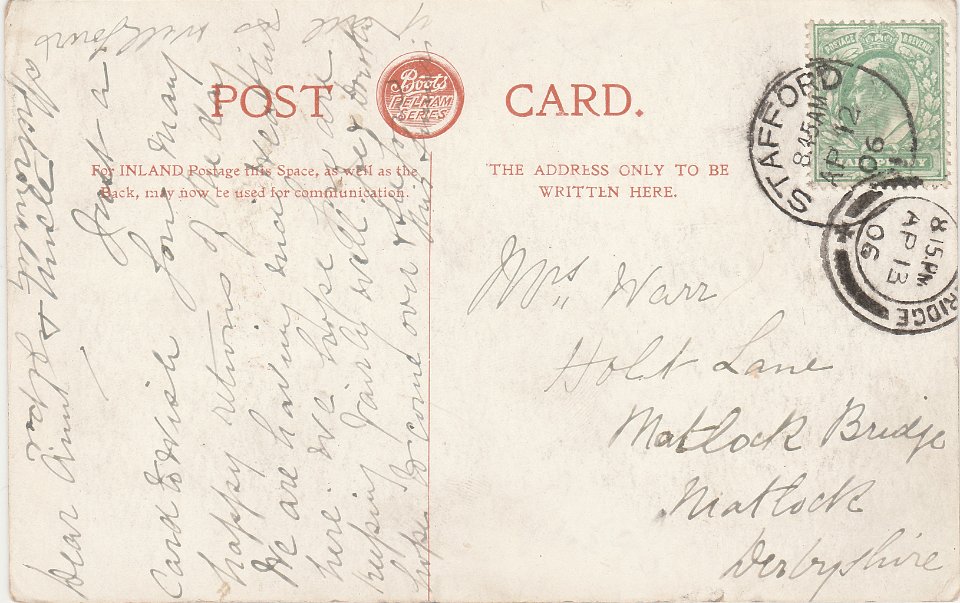 POST CARD.
Boots
PELHAM
SERIES
For INLAND Postage this Space, as well as the
Back, may now be used for communication.
THE ADDRESS ONLY TO BE
WRITTEN HERE.
POSTAGE REVENUE
HALFPENNY
STAFFORD
8.45AM
AP 12
06
8.15PM
AP 13
06
RIDGE
Dear Aunt
Just a
Card to wish you many
happy returns of the day
We are having nice weather
here. We hope you are
keeping fairly well
hope to come over &
Mrs Warr
Holt Lane
Matlock Bridge
Matlock
Derbyshire